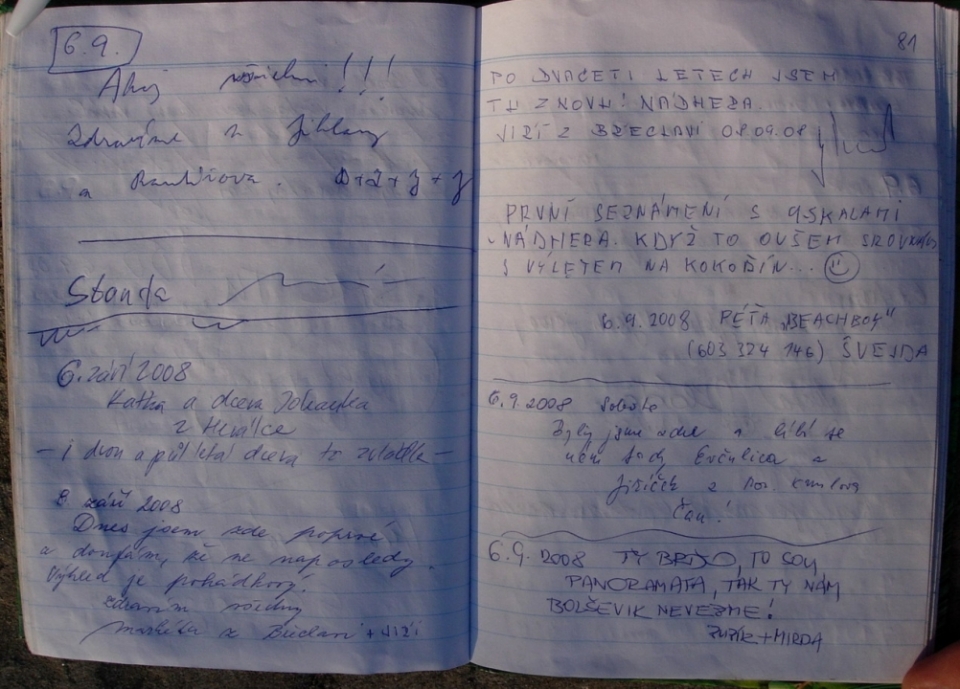 6.9.
Ahoj všichni !!!
Zdravíme z Jihlavy
a Rantířova. D+J+J+J
Standa
6. září 2008
Katka a dcera
z Herálce
- i dvou a půl letá dcera to zvládla -
8. září 2008
Dnes jsem zde poprvé
a doufám, že ne naposledy.
Výhled je pohádkový!
Zdravím všechny
Markéta z Břeclavi + JIŽÍ
81
PO DVACETI LETECH JSEM
TU ZNOVU! NÁDHERA.
JIŘÍ Z BŘECLAVI 08.09.08
PRVNÍ SEZNÁMENÍ S 9-SKALAMI
NÁDHERA. KDYŽ TO OVŠEM SROVNÁM
S VÝLETEM NA KOKOŘÍN...
6.9.2008 PÉŤA „BEACHBOY"
(603 324 746) ŠVEJDA
6.9.2008 Sobota
Byly jsme zde a líbí se
nám tady Evčulica a
Jiříček z
Čau!
6.9.2008 TY BRĎO, TO SOU
PANORAMATA, TAK TY NÁM
BOLŠEVIK NEVEZME!
+MIRDA